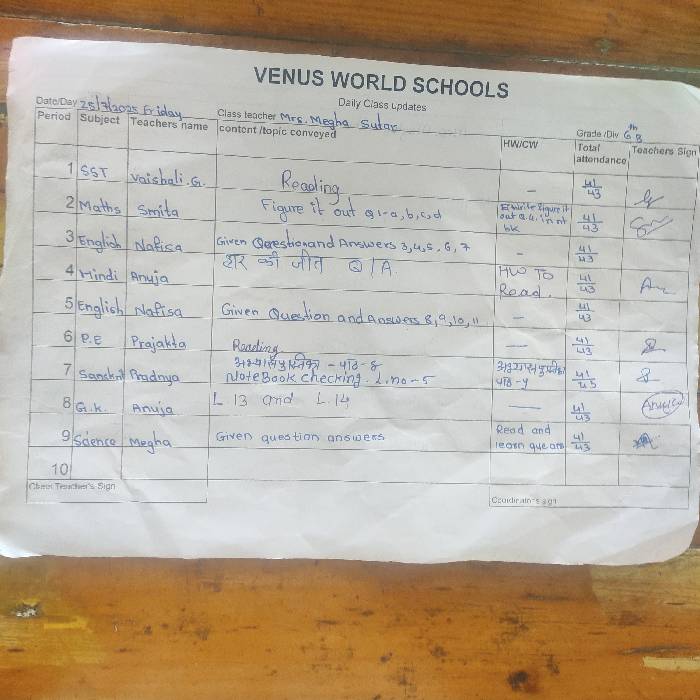 VENUS WORLD SCHOOLS
Daily Class updates
Date/Day 25/7/2025 Friday Class teacher Mrs. Megha Sutar Grade /Div 6th B
Period Subject Teachers name content /topic conveyed HW/CW Total attendance Teachers Sign
1 SST Vaishali.G. Reading - 41/43
2 Maths Smita Figure it out Q1-a, b, c, d write figure it out Q.4. in nt bk 41/43
3 English Nafisa Given Question and Answers 3,4,5,6,7 - 41/43
4 Hindi Anuja हार की जीत Q/A HW To Read. 41/43
5 English Nafisa Given Question and Answers 8,9,10,11 - 41/43
6 P.E Prajakta Reading — 41/43
7 Sanskrit Pradnya अभ्यासपुस्तिका - पाठ-४ अभ्यासपुस्तिका 41/45
NoteBook checking. L.no-5 पाठ-४
8 G.K. Anuja L 13 and L.14 — 41/43
9 Science Megha Given question answers Read and learn que ans 41/43
10
Class Teacher's Sign Coordinators sign